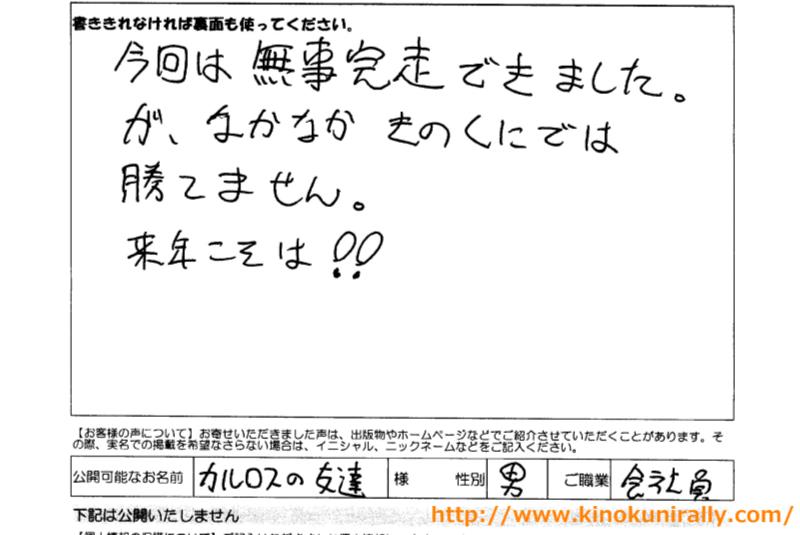 書ききれなければ裏面も使ってください。
今回は無事完走できました。
が、なかなか きのくにでは
勝てません。
来年こそは!!
【お客様の声について】お寄せいただきました声は、出版物やホームページなどでご紹介させていただくことがあります。そ
の際、実名での掲載を希望なさらない場合は、イニシャル、ニックネームなどをご記入ください。
公開可能なお名前 カルロスの友達 様 性別 男 ご職業 会社員
下記は公開いたしません
http://www.kinokunirally.com/